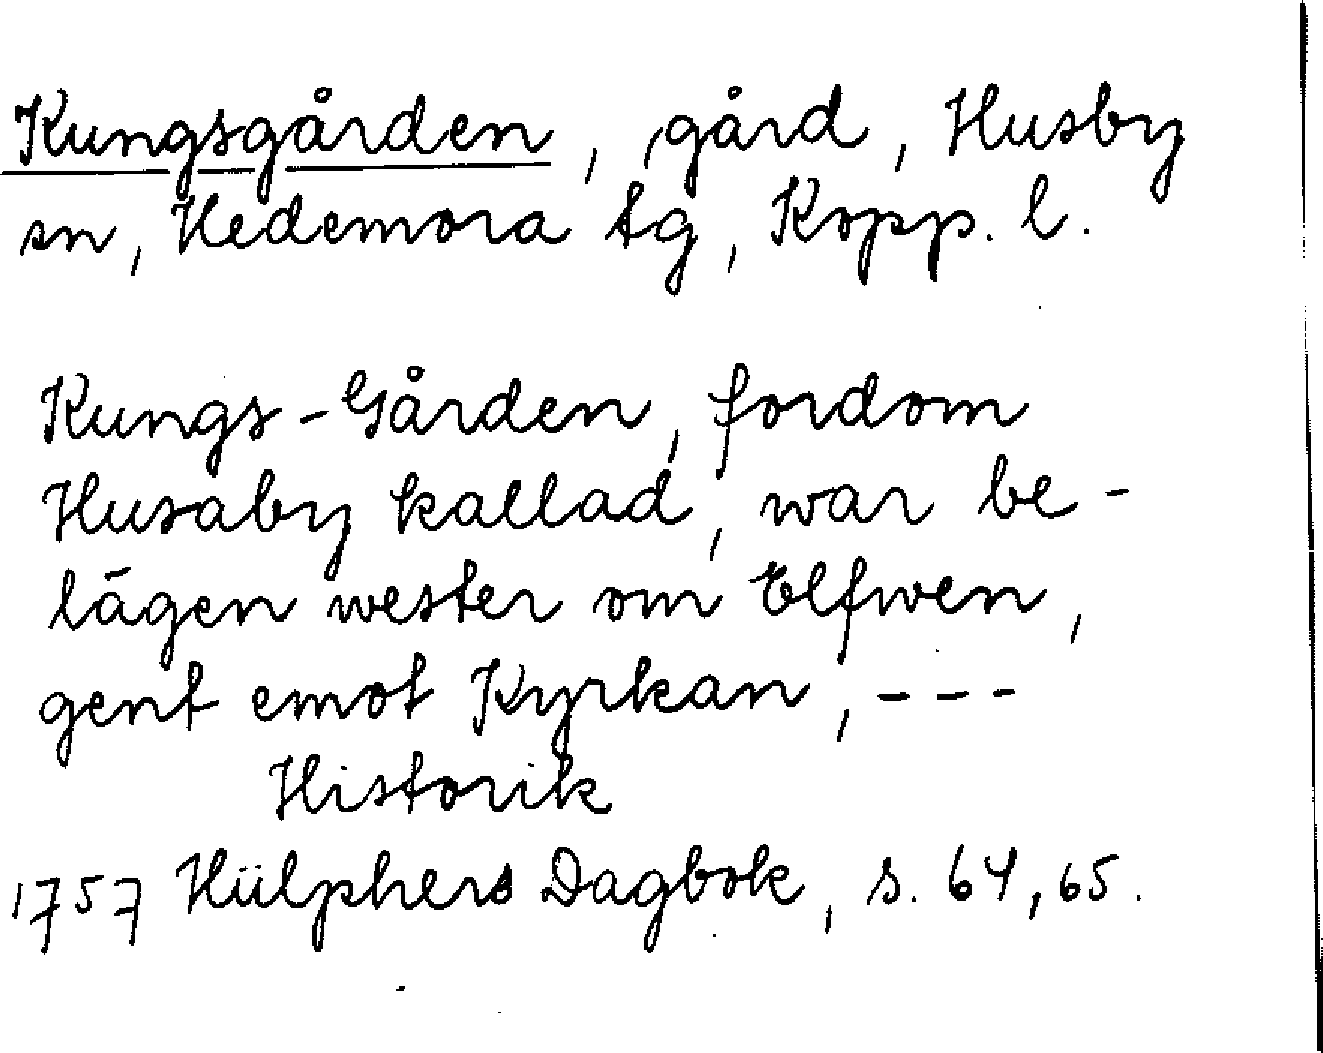 Kungsgården, gård, Husby
sn, Hedemora tg, Kopp. l.
Kungs-Gården, fordom
Husaby kallad, war be-
lägen wester om Elfwen,
gent emot Kyrkan, ---
Historik
1757 Hülphers Dagbok, s. 64, 65.